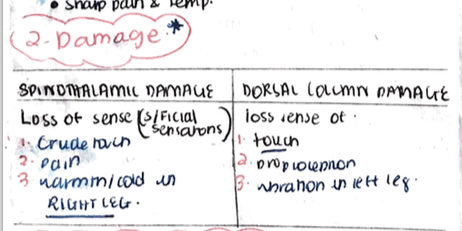 • Sharp pain & Temp.
2. Damage.*
SPINOTHALAMIC DAMAGE
Loss of sense (S/Ficial sensations)
1. Crude touch
2. pain
3 warmm/cold in
RIGHT LEG.
DORSAL COLUMN DAMAGE
loss sense of.
1. touch
2. proprioception
3. vibration in left leg.